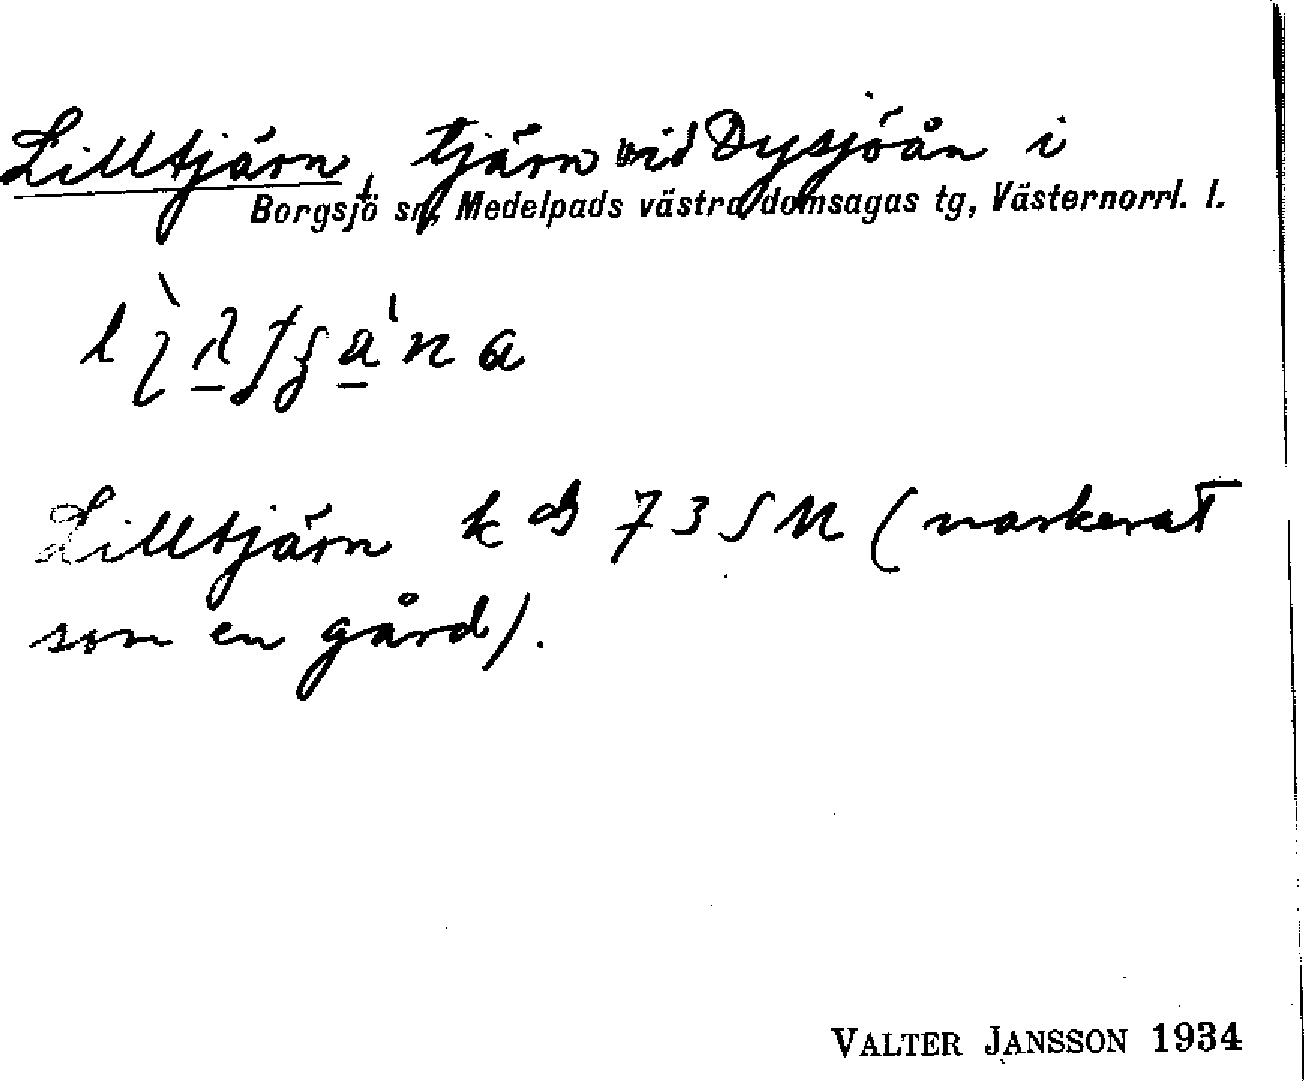 Lilltjärn, tjärn vid Dysjöån i
Borgsjö sn, Medelpads västra domsagas tg, Västernorrl. l.
Lilltjärn k 73 SM (markerat
som en gård).
VALTER JANSSON 1934